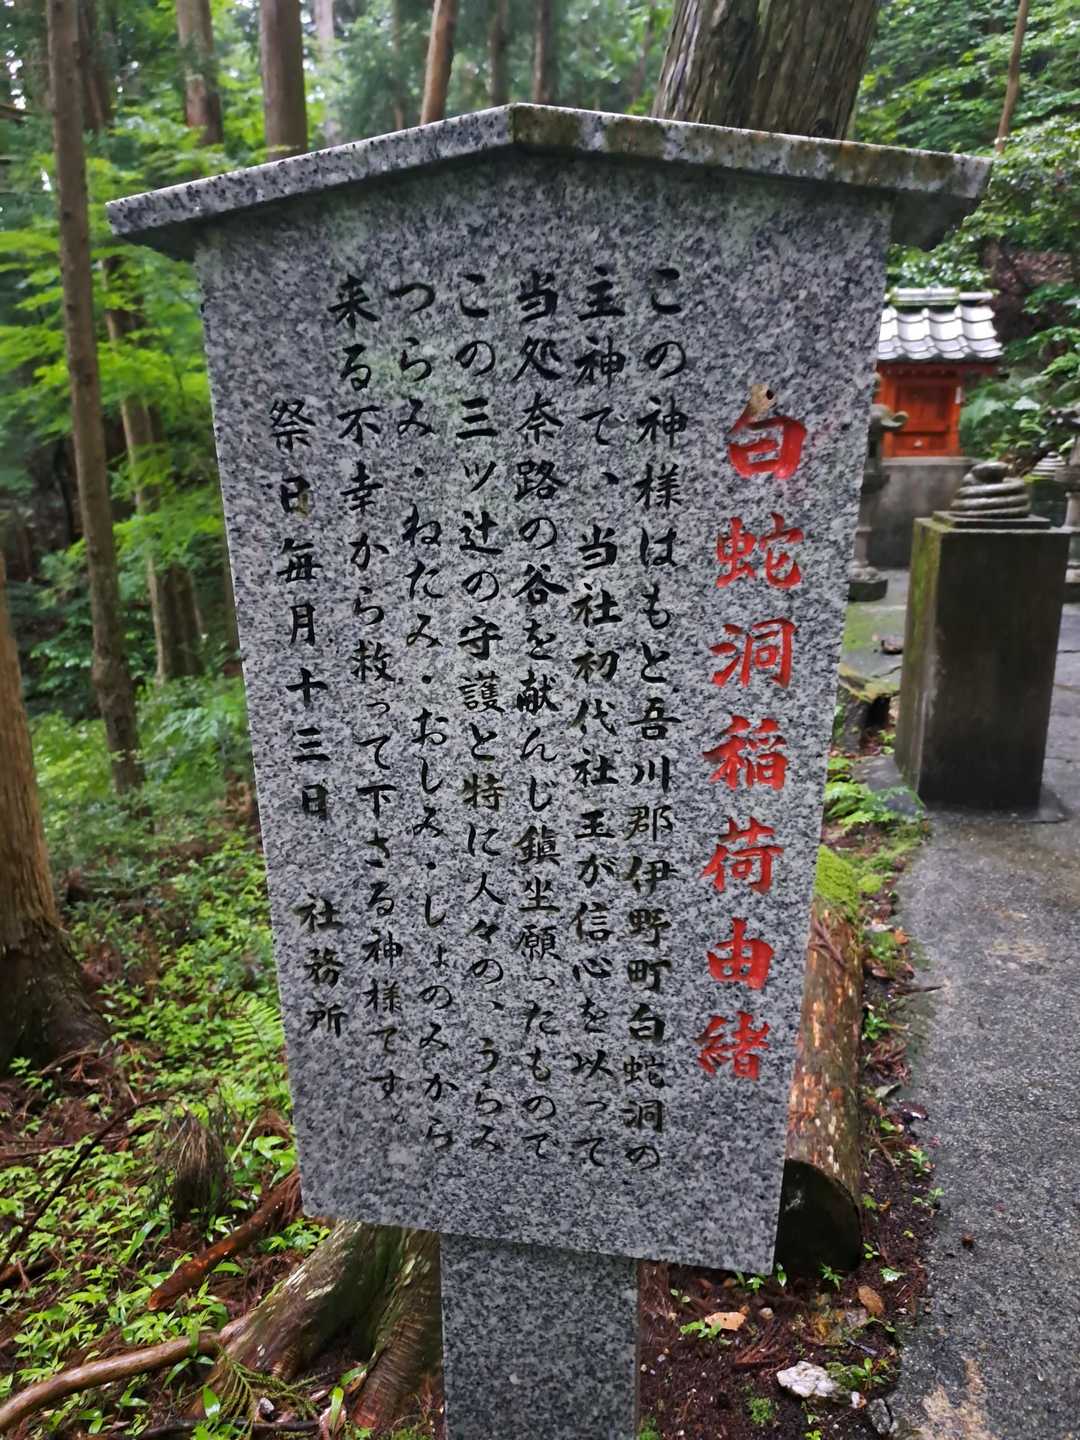 白蛇洞稲荷由緒
この神様はもと吾川郡伊野町白蛇洞の
主神で、当社初代社主が信心を以って
当処奈路の谷を献んじ鎮坐願ったもので
この三ッ辻の守護と特に人々の、うらみ
つらみ・ねたみ・おしみ・しょのみから
来る不幸から救って下さる神様です。
祭日毎月十三日　社務所